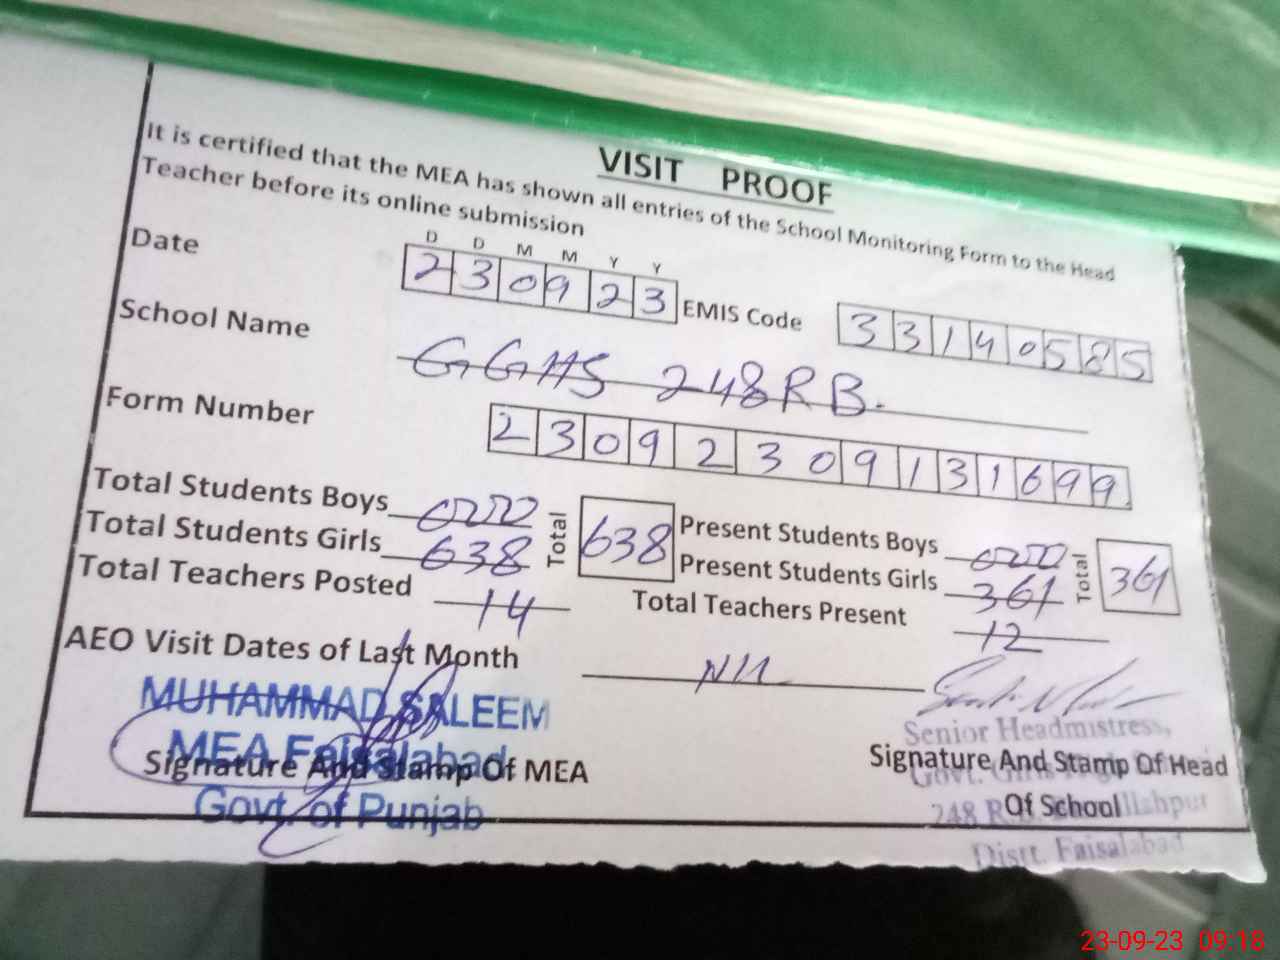 VISIT PROOF
It is certified that the MEA has shown all entries of the School Monitoring Form to the Head
Teacher before its online submission
D D M M Y Y
Date 2 3 0 9 2 3 EMIS Code 3 3 1 4 0 5 8 5
School Name GGHS 248 RB.
Form Number 2 3 0 9 2 3 0 9 1 3 1 6 9 9
Total Students Boys 000 Total 638 Present Students Boys 000 Total 361
Total Students Girls 638 Present Students Girls 361
Total Teachers Posted 14 Total Teachers Present 12
AEO Visit Dates of Last Month Nil
MUHAMMAD SALEEM
MEA Faisalabad
Govt. of Punjab
Signature And Stamp Of MEA
Senior Headmistress,
Govt. Girls
248 R
Distt. Faisalabad
Signature And Stamp Of Head
Of School
23-09-23 09:18